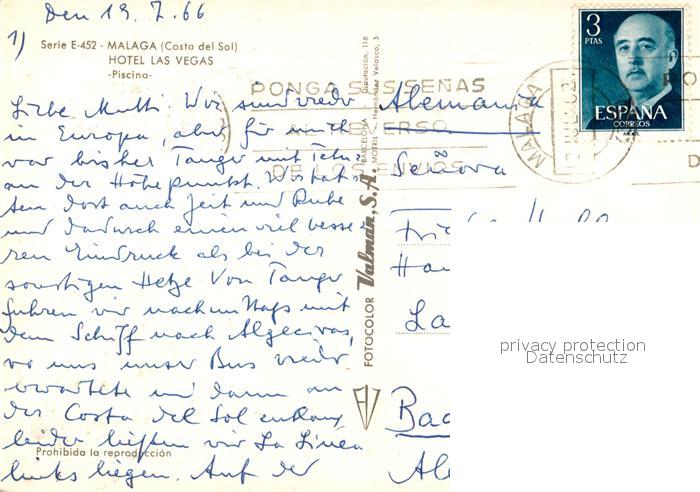 Den 19. 7. 66
1)
Serie E-452 - MALAGA (Costa del Sol)
HOTEL LAS VEGAS
-Piscina-
Liebe Mutti. Wir sind wieder
in Europa, aber für mich
war bisher Tanger mit
an der Höhepunkt. Wir hat-
ten dort auch Zeit und Ruhe
und dadurch einen viel besse-
ren Eindruck als bei der
sonstigen Hetze. Von Tanger
fuhren wir nachm
dem Schiff nach Algeciras,
wo uns unser Bus wieder
erwartete und dann an
der Costa del Sol entlang
leider ließen wir La Línea
links liegen. Auf der
Prohibida la reproducción
FOTOCOLOR Valman, S.A.
BARCELONA - Diputación, 118
MOTRIL - Hernández Velasco, 3
PONGA SUS SEÑAS
AL REVERSO
DE LOS ENVIOS
MALAGA
3
PTAS
ESPAÑA
CORREOS
Alemania
Señora
Ha
La
Bad
Al
privacy protection
Datenschutz